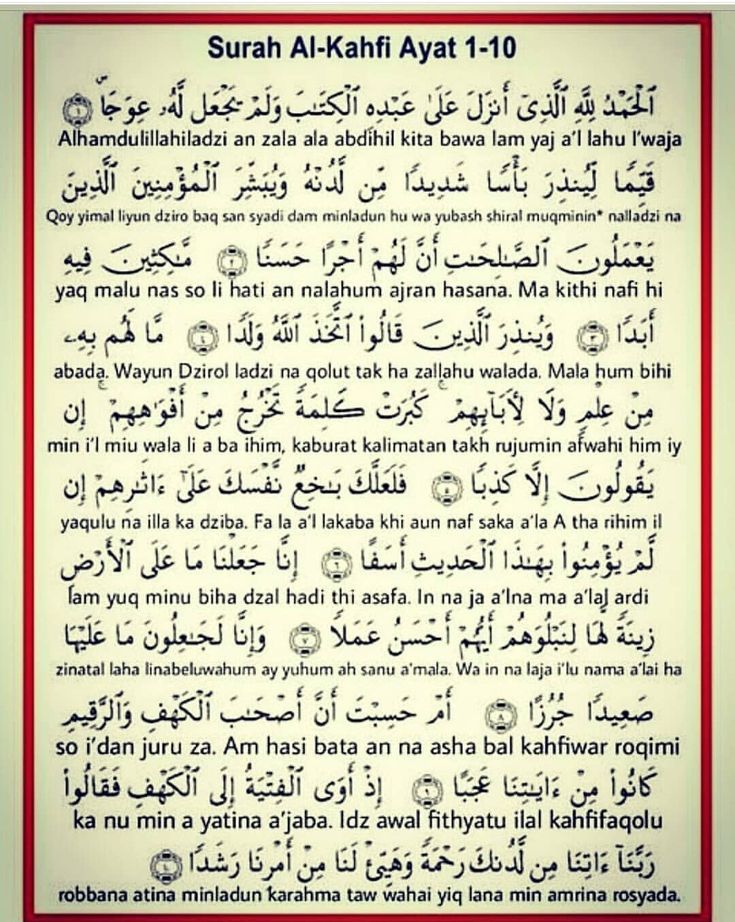 Surah Al-Kahfi Ayat 1-10
ٱلْحَمْدُ لِلَّهِ ٱلَّذِىٓ أَنزَلَ عَلَىٰ عَبْدِهِ ٱلْكِتَٰبَ وَلَمْ يَجْعَل لَّهُۥ عِوَجَاۜ ١
Alhamdulillahiladzi an zala ala abdihil kita bawa lam yaj a'l lahu I'waja
قَيِّمًا لِّيُنذِرَ بَأْسًا شَدِيدًا مِّن لَّدُنْهُ وَيُبَشِّرَ ٱلْمُؤْمِنِينَ ٱلَّذِينَ
Qoy yimal liyun dziro baq san syadi dam minladun hu wa yubash shiral muqminin* nalladzi na
يَعْمَلُونَ ٱلصَّٰلِحَٰتِ أَنَّ لَهُمْ أَجْرًا حَسَنًا ٢ مَّٰكِثِينَ فِيهِ
yaq malu nas so li hati an nalahum ajran hasana. Ma kithi nafi hi
أَبَدًا ٣ وَيُنذِرَ ٱلَّذِينَ قَالُوا۟ ٱتَّخَذَ ٱللَّهُ وَلَدًا ٤ مَّا لَهُم بِهِۦ
abada. Wayun Dzirol ladzi na qolut tak ha zallahu walada. Mala hum bihi
مِنْ عِلْمٍ وَلَا لِءَابَآئِهِمْ ۚ كَبُرَتْ كَلِمَةً تَخْرُجُ مِنْ أَفْوَٰهِهِمْ ۚ إِن
min i'l miu wala li a ba ihim, kaburat kalimatan takh rujumin afwahi him iy
يَقُولُونَ إِلَّا كَذِبًا ٥ فَلَعَلَّكَ بَٰخِعٌ نَّفْسَكَ عَلَىٰٓ ءَاثَٰرِهِمْ إِن
yaqulu na illa ka dziba. Fa la a'l lakaba khi aun naf saka a'la A tha rihim il
لَّمْ يُؤْمِنُوا۟ بِهَٰذَا ٱلْحَدِيثِ أَسَفًا ٦ إِنَّا جَعَلْنَا مَا عَلَى ٱلْأَرْضِ
lam yuq minu biha dzal hadi thi asafa. In na ja a'lna ma a'lal ardi
زِينَةً لَّهَا لِنَبْلُوَهُمْ أَيُّهُمْ أَحْسَنُ عَمَلًا ٧ وَإِنَّا لَجَٰعِلُونَ مَا عَلَيْهَا
zinatal laha linabeluwahum ay yuhum ah sanu a'mala. Wa in na laja i'lu nama a'lai ha
صَعِيدًا جُرُزًا ٨ أَمْ حَسِبْتَ أَنَّ أَصْحَٰبَ ٱلْكَهْفِ وَٱلرَّقِيمِ
so i'dan juru za. Am hasi bata an na asha bal kahfiwar roqimi
كَانُوا۟ مِنْ ءَايَٰتِنَا عَجَبًا ٩ إِذْ أَوَى ٱلْفِتْيَةُ إِلَى ٱلْكَهْفِ فَقَالُوا۟
ka nu min a yatina a'jaba. Idz awal fithyatu ilal kahfifaqolu
رَبَّنَآ ءَاتِنَا مِن لَّدُنكَ رَحْمَةً وَهَيِّئْ لَنَا مِنْ أَمْرِنَا رَشَدًا
robbana atina minladun karahma taw wahai yiq lana min amrina rosyada.